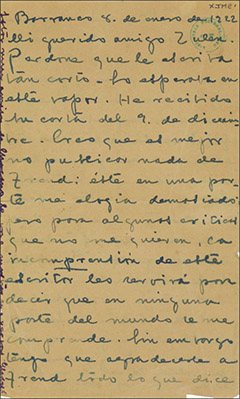 XJME1
Barranco 8. de enero de 1922
Mi querido amigo Zulen:
Perdone que le escriba
tan corto. Lo esperaba en
este vapor. He recibido
su carta del 9. de diciem-
bre. Creo que es mejor
no publicar nada de
Frend: éste en una par-
te me elogia demasiado;
pero para algunos críticos
que no me quieren, la
incomprensión de este
escritor les servirá para
decir que en ninguna
parte del mundo se me
comprende. Sin embargo
tengo que agradecerle a
Frend todo lo que dice